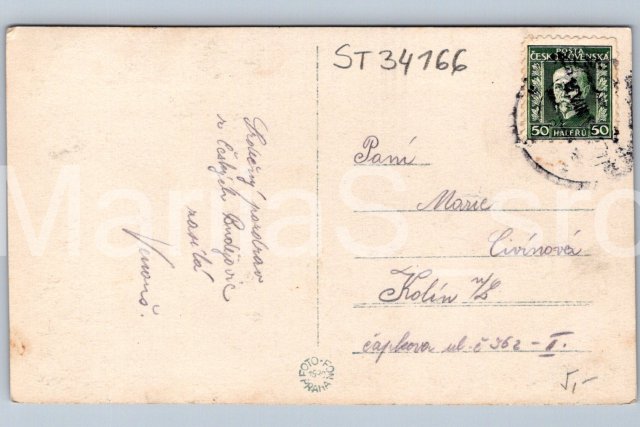 ST 34166
POŠTA
ČESKOSLOVENSKÁ
50 HALÉŘŮ 50
Srdečný pozdrav
z Českých Budějovic
zasílá
Paní
Marie
Civínová
Kolín n/L
čápkova ul. č 362 - II.
5,-
FOTO-FON
PRAHA
MarkaS_sto